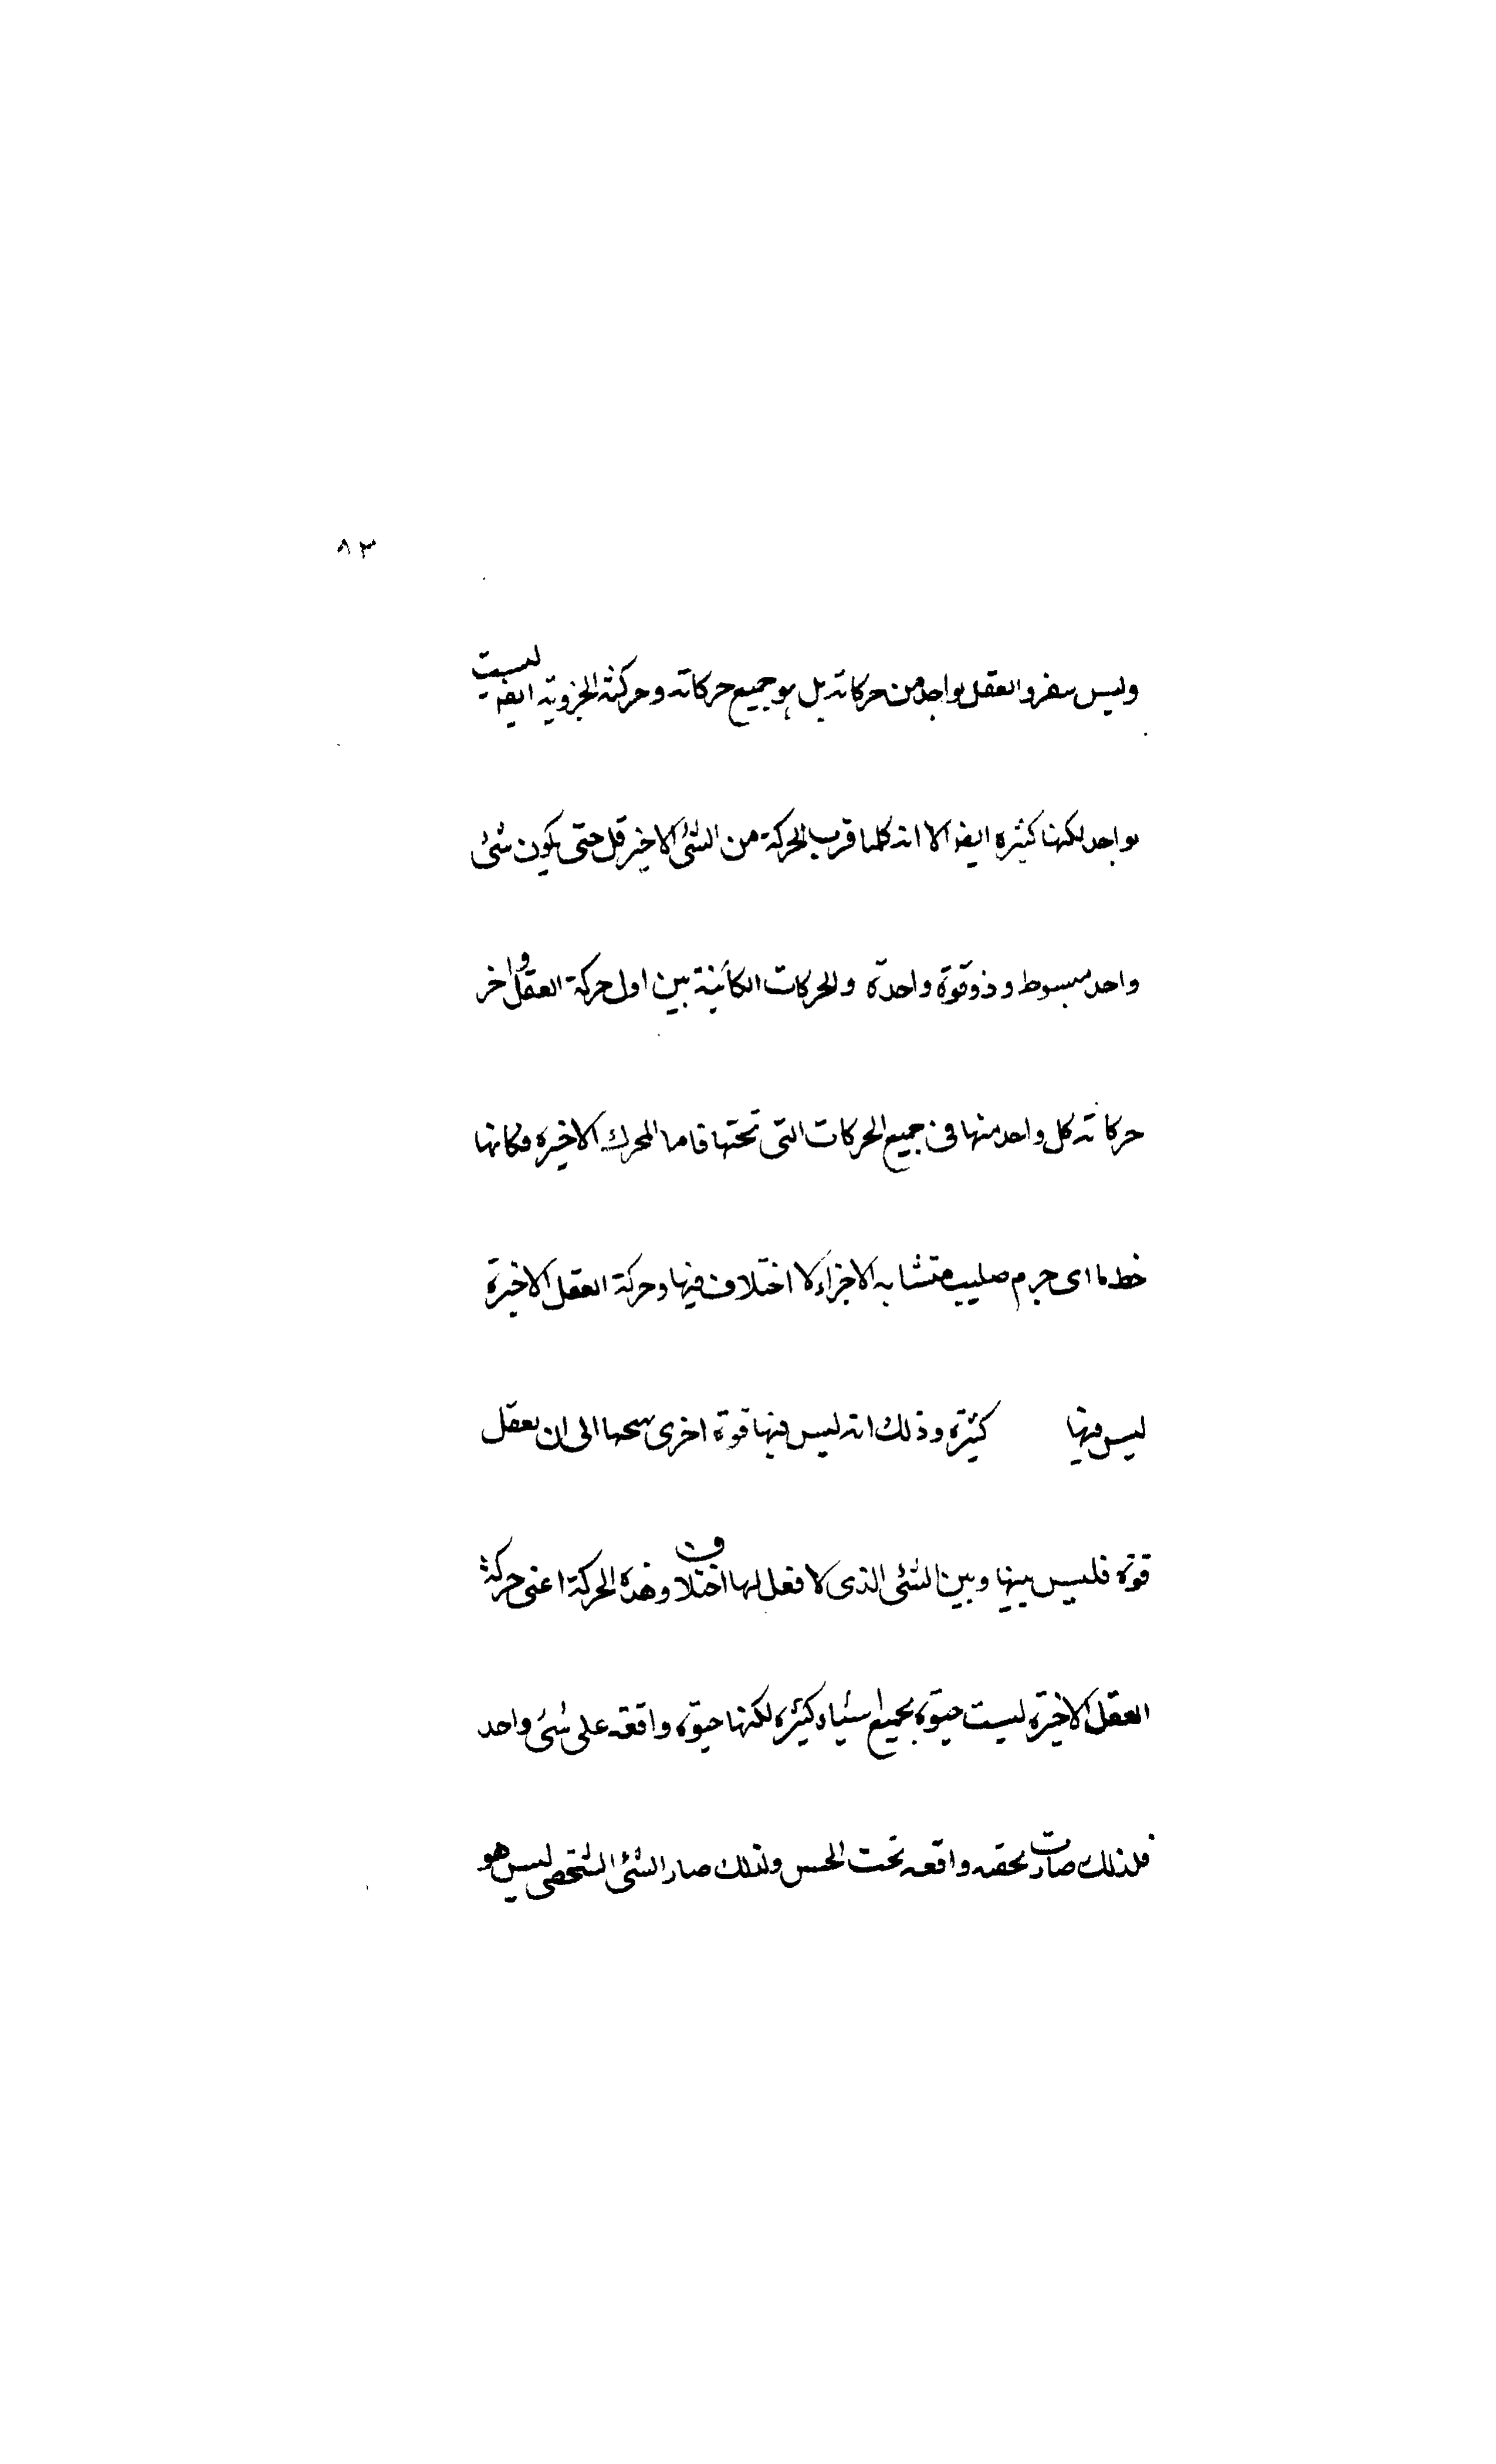 ٨٣
وليس سفر والعقل بواحد من حركاته بل هو جميع حركاته وحركته الجزوية ايضه ليست
بواحد لكنها كثيره ايضه الا انه كلما قرب الحركة من الشئ الاخير قل حتى يكون شئ
واحد مبسوط وذو قوة واحدة والحركات الكائنة بين اول حركة العقل واخر
حركاته كل واحد منها فى جميع الحركات التى تحتها فاما المحرك الاخيره فكانها
خط ما اى جرم صليب متشابه الاجزاء لا اختلاف فيها وحركة العقل الاخيرة
ليس فيها كثيرة وذلك انه ليس فيها قوة اخرى الى ان يعقل
قوة فليس بينها وبين الشئ الذى لا فعل لها اختلاف وهذه الحركة اعنى حركة
العقل الاخيرة ليست حيوة بجميع اشياء كثيره لكنها حيوة واقعه على شئ واحد
فلذلك صارت واقعه تحت الحس ولذلك صار الشئ الشخصى ليس هو